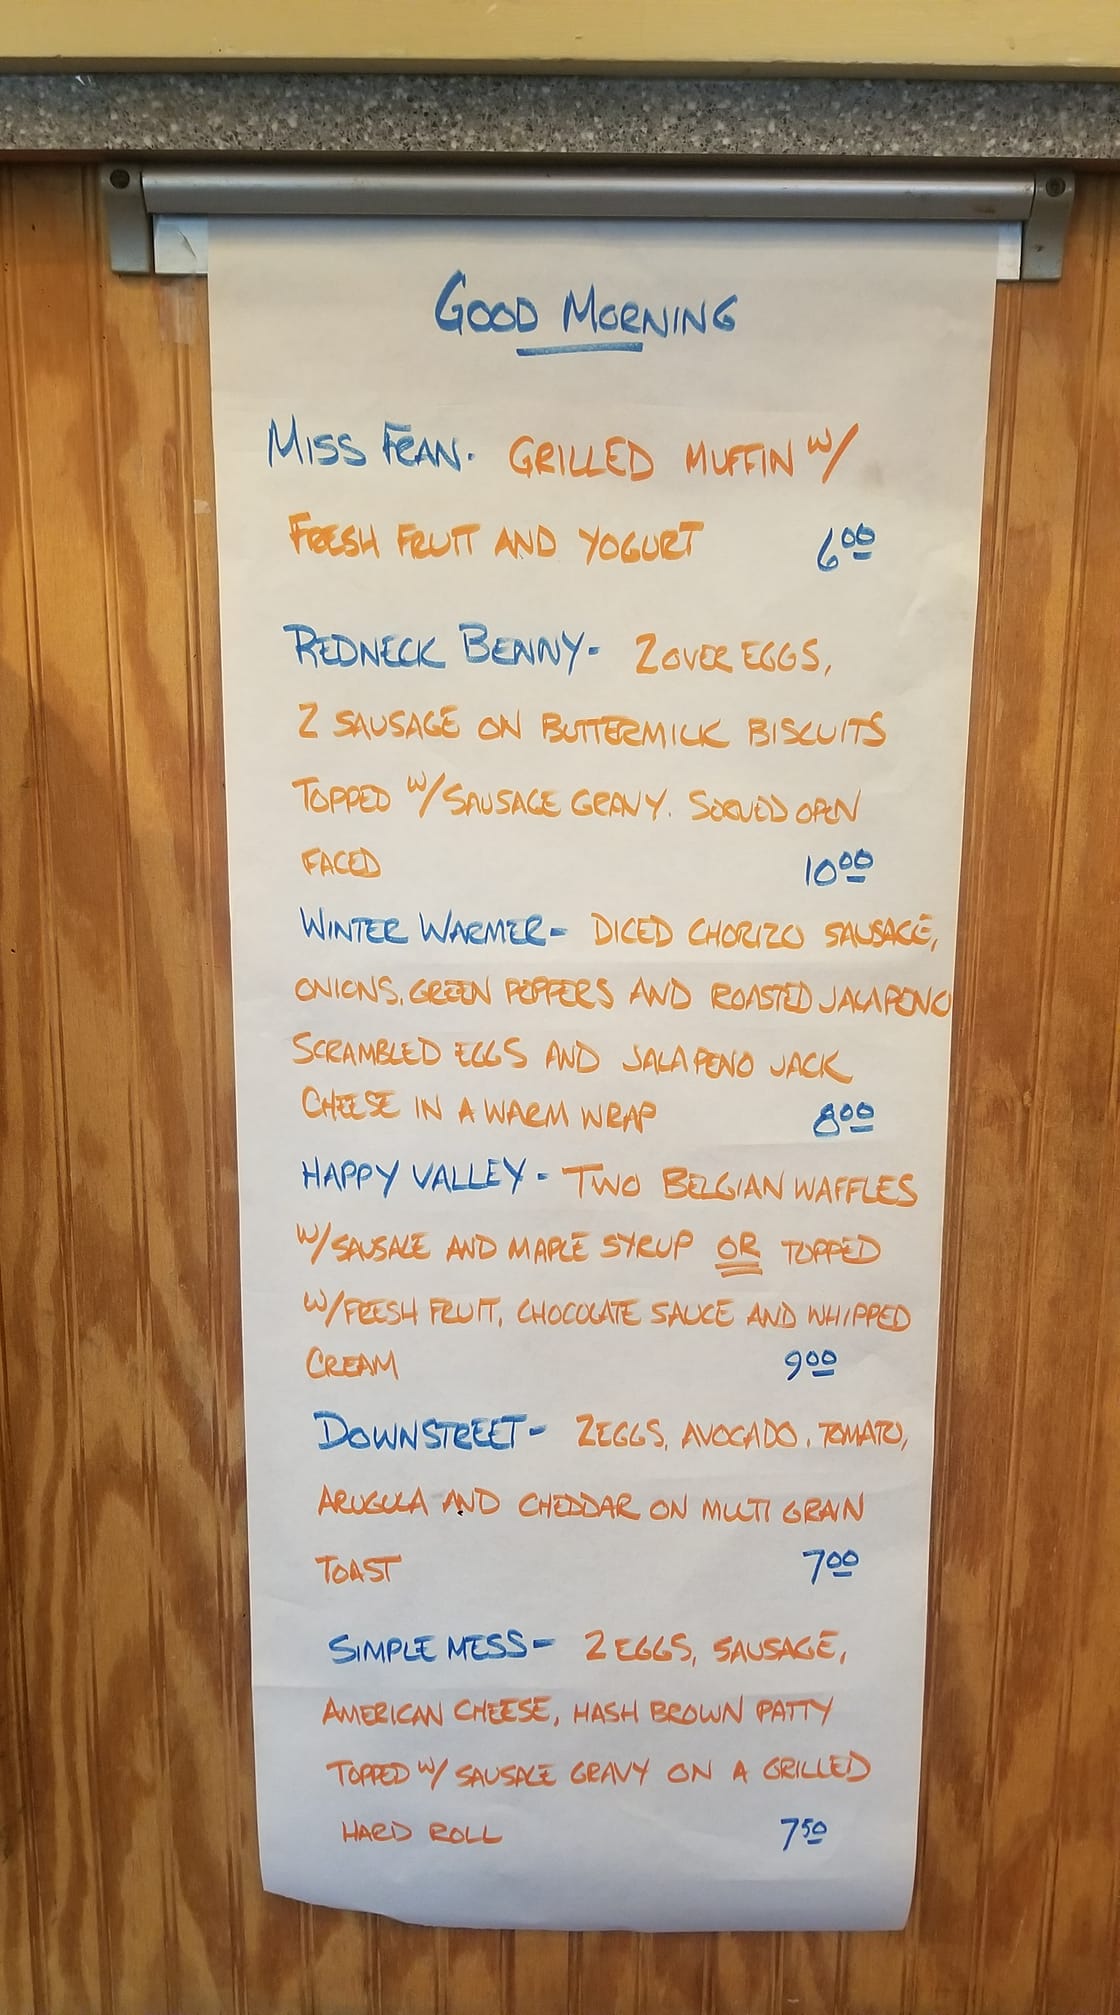 GOOD MORNING
MISS FRAN. GRILLED MUFFIN W/
FRESH FRUIT AND YOGURT 6.00
REDNECK BENNY- 2 OVER EGGS,
2 SAUSAGE ON BUTTERMILK BISCUITS
TOPPED W/SAUSAGE GRAVY. SERVED OPEN
FACED 10.00
WINTER WARMER- DICED CHORIZO SAUSAGE,
ONIONS, GREEN PEPPERS AND ROASTED JALAPENO
SCRAMBLED EGGS AND JALAPENO JACK
CHEESE IN A WARM WRAP 8.00
HAPPY VALLEY- TWO BELGIAN WAFFLES
W/SAUSAGE AND MAPLE SYRUP OR TOPPED
W/FRESH FRUIT, CHOCOLATE SAUCE AND WHIPPED
CREAM 9.00
DOWNSTREET- 2 EGGS, AVOCADO, TOMATO,
ARUGULA AND CHEDDAR ON MULTI GRAIN
TOAST 7.00
SIMPLE MESS- 2 EGGS, SAUSAGE,
AMERICAN CHEESE, HASH BROWN PATTY
TOPPED W/ SAUSAGE GRAVY ON A GRILLED
HARD ROLL 7.50